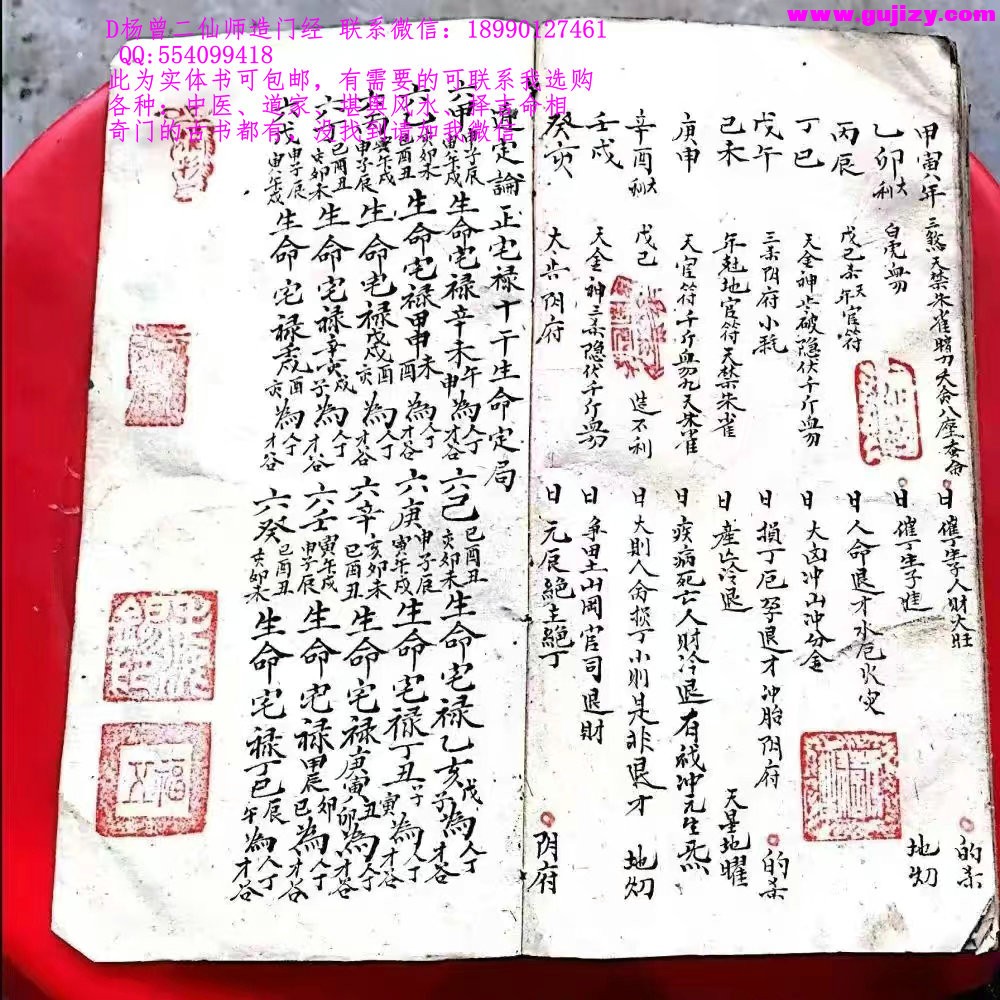 www.gujizy.com
D杨曾二仙师造门经 联系微信：18990127461
QQ:554099418
此为实体书可包邮，有需要的可联系我选购
各种：中医、道家、堪舆风水、择吉命相
奇门的古书都有，没找到请加我微信
甲寅八年 三煞天禁朱雀 日催丁生子人财大旺 的杀
乙卯大利 白虎血刃 日催丁生子進 地刼
丙辰 戊己杀天年官符 日人命退才水厄火灾
丁巳 天金神 破隐伏千斤血刃 日大凶冲山冲分金
戊午 三杀阴府小耗 日損丁厄孕退才冲胎阴府 的杀
己未 年尅地官符天禁朱雀 日產亡冷退 天星地曜
庚申 天官符千斤血刃九天朱雀 日疾病死亡人财冷退有戏冲元生死
辛酉大利 戊己 造不利 日大則人命损丁小則是非退才 地刼
壬戌 天金神三杀隐伏千斤血刃 日争田土山岡官司退財
癸亥 大告阴府 日元辰絕主絕丁 阴府
遁定論正宅禄十干生命定局
六甲申子辰寅午戌生命宅禄辛未午申為人丁才谷 六己巳酉丑亥卯未生命宅禄乙亥戌子為人丁才谷
巳酉丑亥卯未生命宅禄甲申未酉為人丁才谷 六庚申子辰寅午戌生命宅禄丁丑子寅為人丁才谷
寅午戌申子辰生命宅禄戊戌酉亥為人丁才谷 六辛亥卯未巳酉丑生命宅禄庚寅丑卯為人丁才谷
六丁巳酉丑亥卯未生命宅禄辛亥戌子為人丁才谷 六壬寅午戌申子辰生命宅禄甲辰卯巳為人丁才谷
六戊申子辰寅午戌生命宅禄壬戌酉亥為人丁才谷 六癸巳酉丑亥卯未生命宅禄丁巳辰午為人丁才谷
福